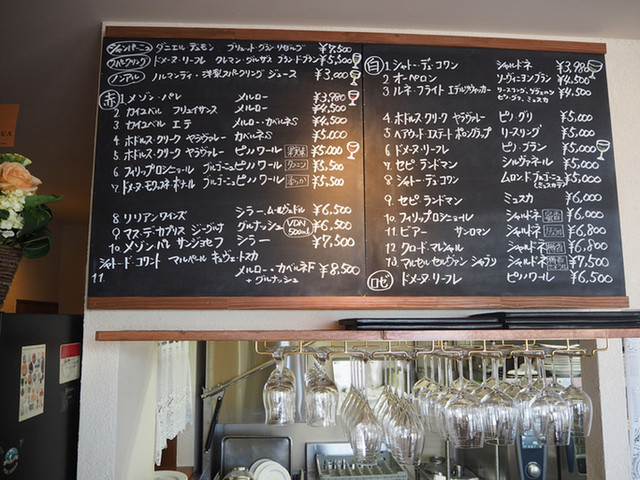 シャンパーニュ ダニエル デュモン ブリュット・グラン・リゼルヴ ¥7,500
スパークリング ドメーヌ・リーフレ クレマン・ダルザス ブラン ド ブラン ¥5,500
ノンアル ノルマンディー 洋梨スパークリング ジュース ¥3,000
赤
1 メゾン・バレ メルロー ¥3,980
2 カイユベル フリュイサンス メルロー ¥4,500
3 カイユベル エテ メルロー・カベルネS ¥4,500
4 ホドルス・クリーク ヤラヴァレー カベルネS ¥5,000
5 ホドルス・クリーク ヤラヴァレー ピノノワール ¥5,000
6 フィリップロシニョール ブルゴーニュ ピノノワール ¥5,500
7 ドメーヌ・モワスネ ボナール ブルゴーニュ ピノノワール ¥5,500
8 リリアンワインズ シラー、ムールヴェドル ¥6,500
9 マス・デ・カプリス ジーグルナ グルナッシュ VDN 500ml ¥6,500
10 メゾン バレ サンジョセフ シラー ¥7,500
11 シャトー・ド・コワント マルペール キュヴェ・トスカ メルロー・カベルネF ¥8,500
+グルナッシュ
白
1 シャトー・デュ・コワン シャルドネ ¥3,980
2 オーペロン ソーヴィニヨンブラン ¥4,500
3 ルネ・フライト エデルツヴィッカー ¥4,500
ピノ・グラ、ミュスカ
4 ホドルス・クリーク ヤラヴァレー ピノ・グリ ¥5,000
5 リースリング ¥5,000
6 ドメーヌ・リーフレ ピノ・ブラン ¥5,500
7 セピ ランドマン シルヴァネール ¥5,500
8 シャトー・デュ・コワン ムロン ド ブルゴーニュ ¥5,500
(ミュスカデ)
9 セピ ランドマン ミュスカ ¥6,000
10 フィリップロシニョール シャルドネ ¥6,000
11 ビアー サンロマン シャルドネ ¥6,800
12 クロード・マレシャル シャルドネ ¥6,800
13 マルセル セルヴァン シャブリ シャルドネ ¥7,500
ロゼ ドメーヌ・リーフレ ピノノワール ¥6,500